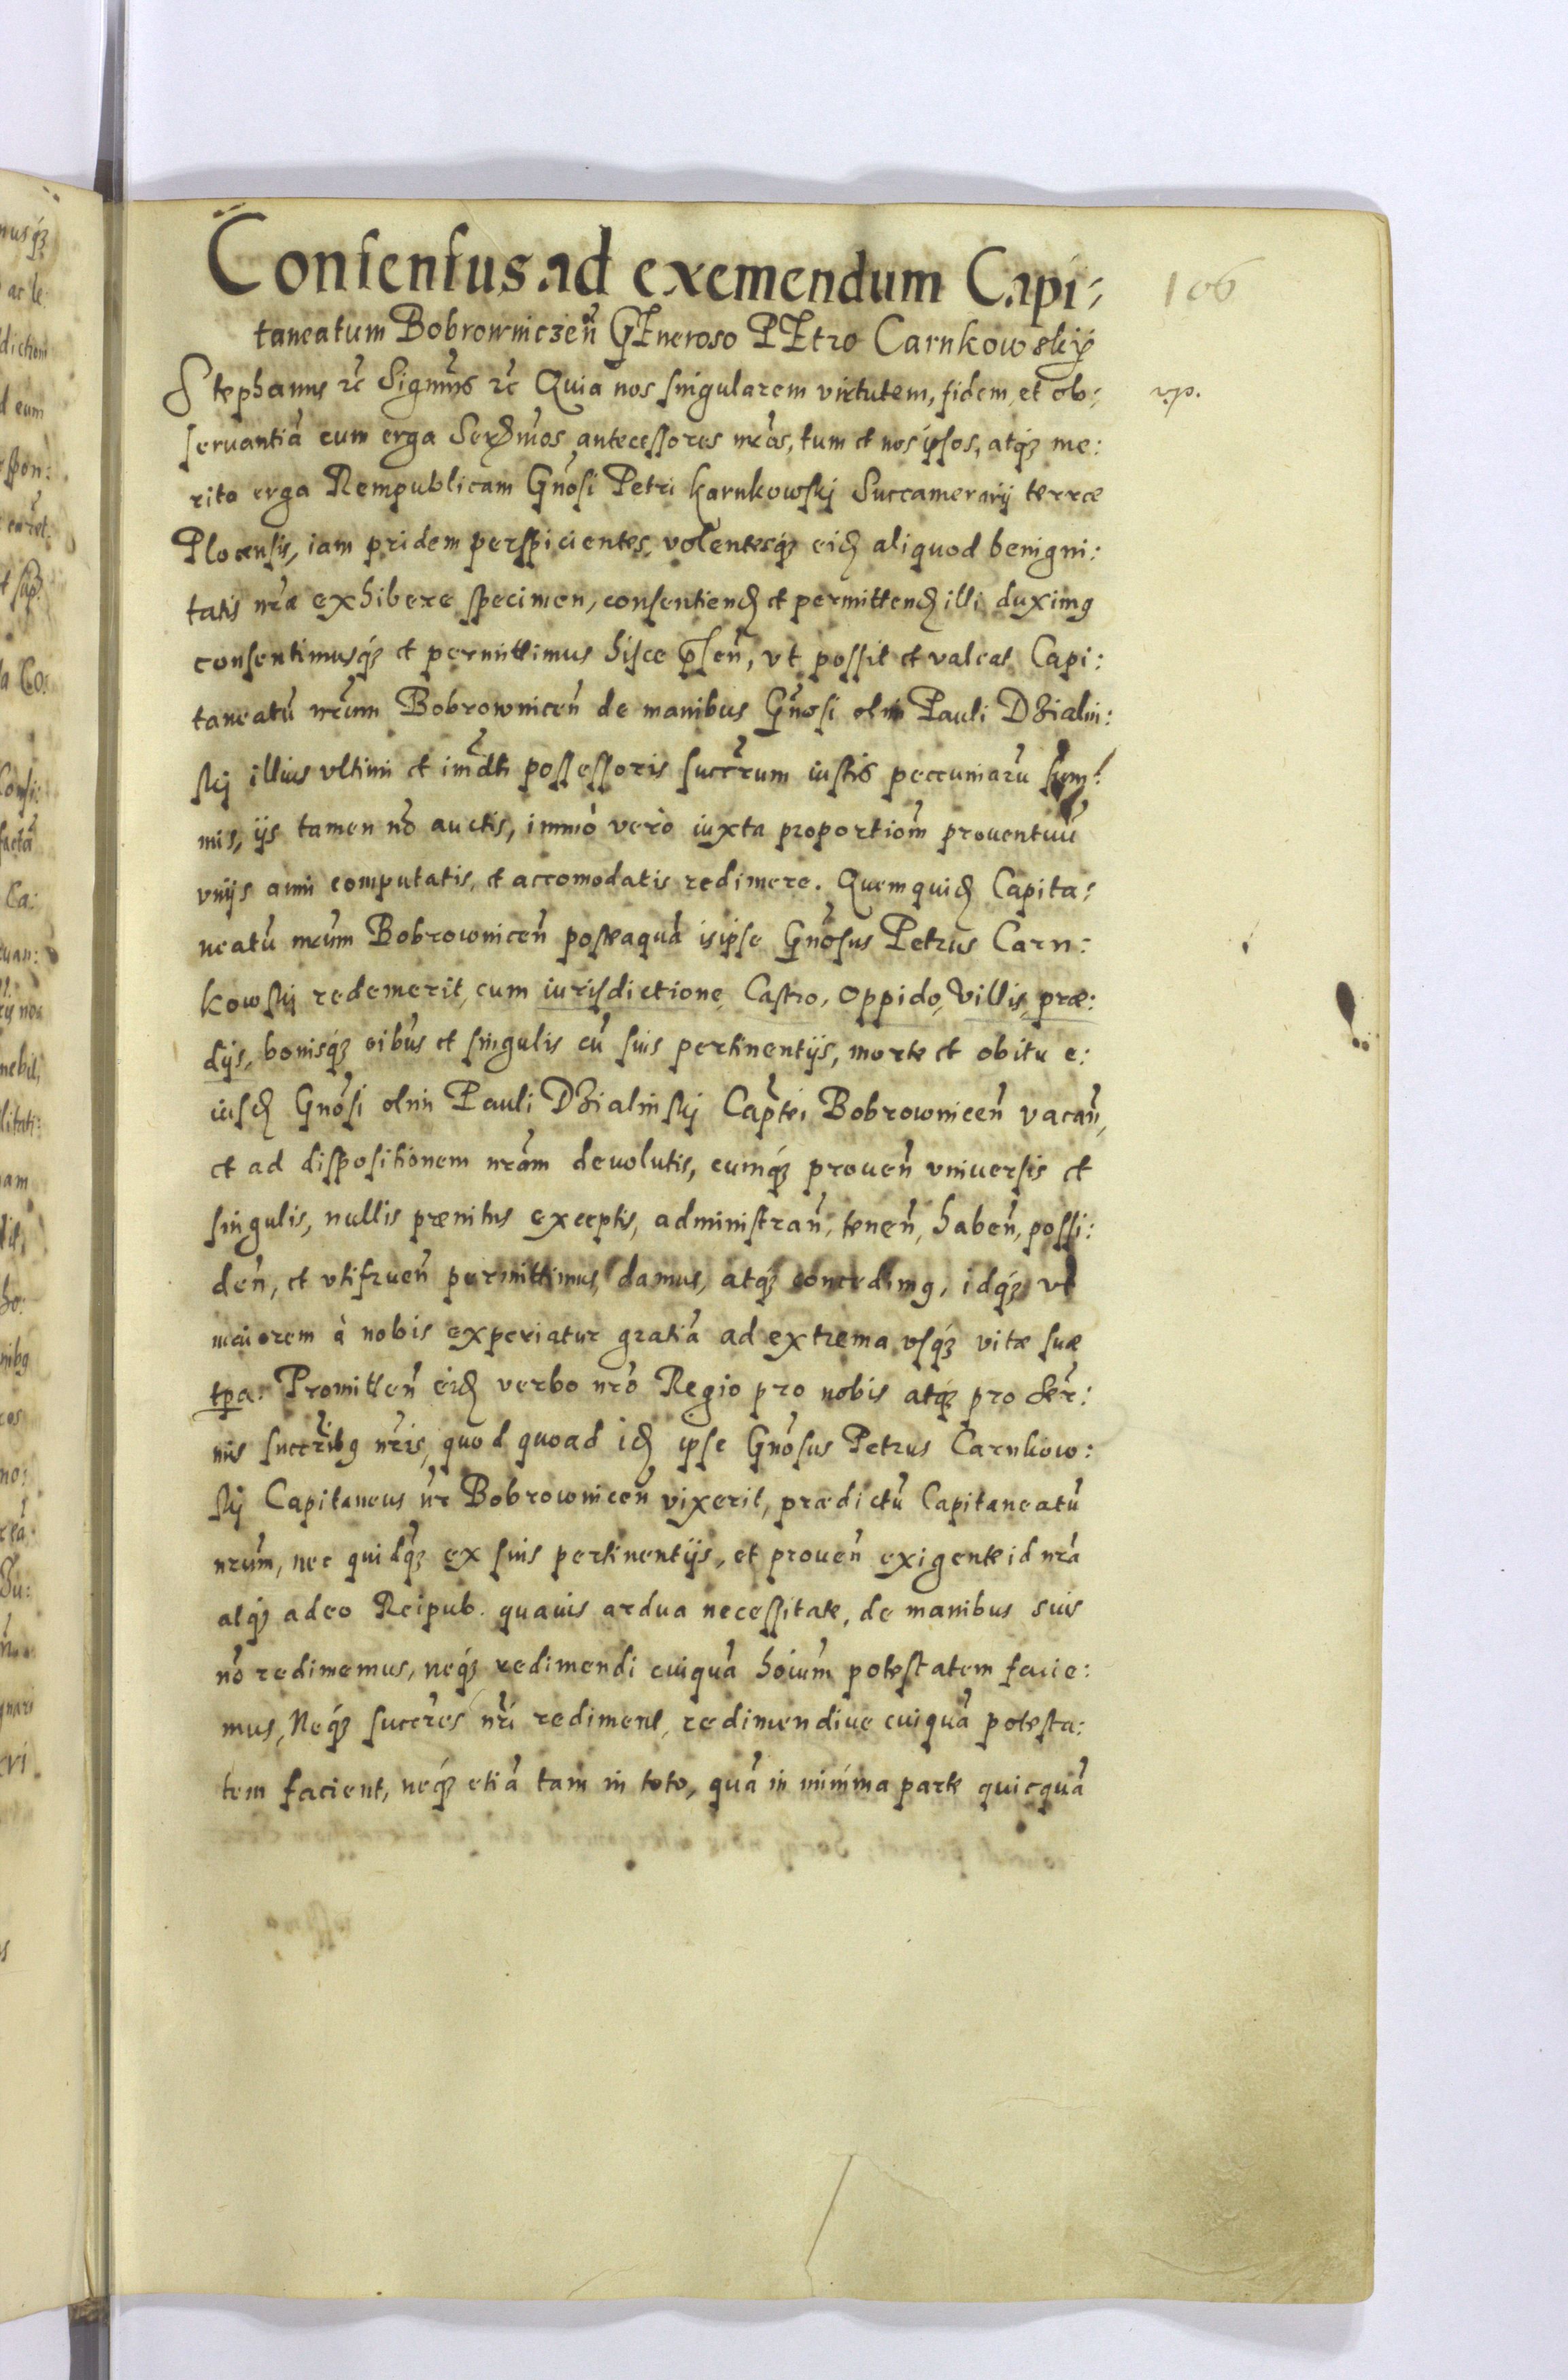 Consensus ad exemendum Capi:
106
taneatum Bobrowniczeñ GEneroso PEtro Carnkowskÿ
Stephanus rc̃ Signm̃s rc̃ Quia nos singularem virtutem, fidem, et ob:
servantiã cum erga Serm̃os antecessores nr̃os, tum et nos ipsos, atq́ꝫ me:
rita erga Rempublicam Gñosi Petri Karnkowskj Succamerarij terræ
Plocensis, iam pridem perspicientes, volentesq́ꝫ eidꝫ aliquod benigni:
tatis nr̃æ exhibere specimen, consentiendꝫ et permittendꝫ illi duximꝰ
consentimusq́ꝫ et permittimus hisce p̃señ, vt possit et valeat Capi:
taneatũ nr̃um Bobrowniceñ de manibus Gñosi olim Pauli Dzialin:
skj illius vltimi et im̃dti possessoris succr̃um iustis peccuniarũ sum:
mis, ijs tamen nõ auctis, immò verò iuxta proportiom̃ prouentuũ
vniįs anni computatis, et accomodatis redimere. Quem quidꝫ Capita:
neatũ nr̃um Bobrowniceñ posteaquã is ipse Gñosus Petrus Carn:
kowskj redemerit, cum iurisdictione, Castro, Oppido, Villis, præ:
dijs, bonisq́ꝫ oibus et singulis cũ suis pertinentijs, morte et obitu e:
iusdꝫ Gñosi olim Pauli Dzialinskj Capt̃ei Bobrowniceñ vacañ,
et ad dispositionem nr̃am deuolutis, cumq́ꝫ proueñ vniuersis et
singulis, nullis pænitus exceptis, administrañ, teneñ, habeñ, possi:
deñ, et vtifrueñ permittimus, damus, atq́ꝫ concedimꝰ, idq́ꝫ vt
maiorem à nobis experiatur gratiã ad extrema vsq́ꝫ vitæ suæ
tp̃a. Promitteñ eidꝫ verbo nr̃o Regio pro nobis atq́ꝫ pro Ser̃:
nis succr̃ibꝰ nr̃is, quod quoad idꝫ ipse Gñosus Petrus Carnkow:
skj Capitaneus nr̃ Bobrowniceñ vixerit, prædictũ Capitaneatũ
nr̃um, nec quidq́ꝫ ex suis pertinentijs, et proueñ exigente id nr̃a
atq́ꝫ adeo Reipub. quauis ardua necessitate, de manibus suis
nõ redimemus, neq́ꝫ redimendi cuiquã hoium̃ potestatem facie:
mus, Neq́ꝫ succr̃es nr̃i rediment, redimendiue cuiquã potesta:
tem facient, neq́ꝫ etiã tam in toto, quã in minima parte quicquã